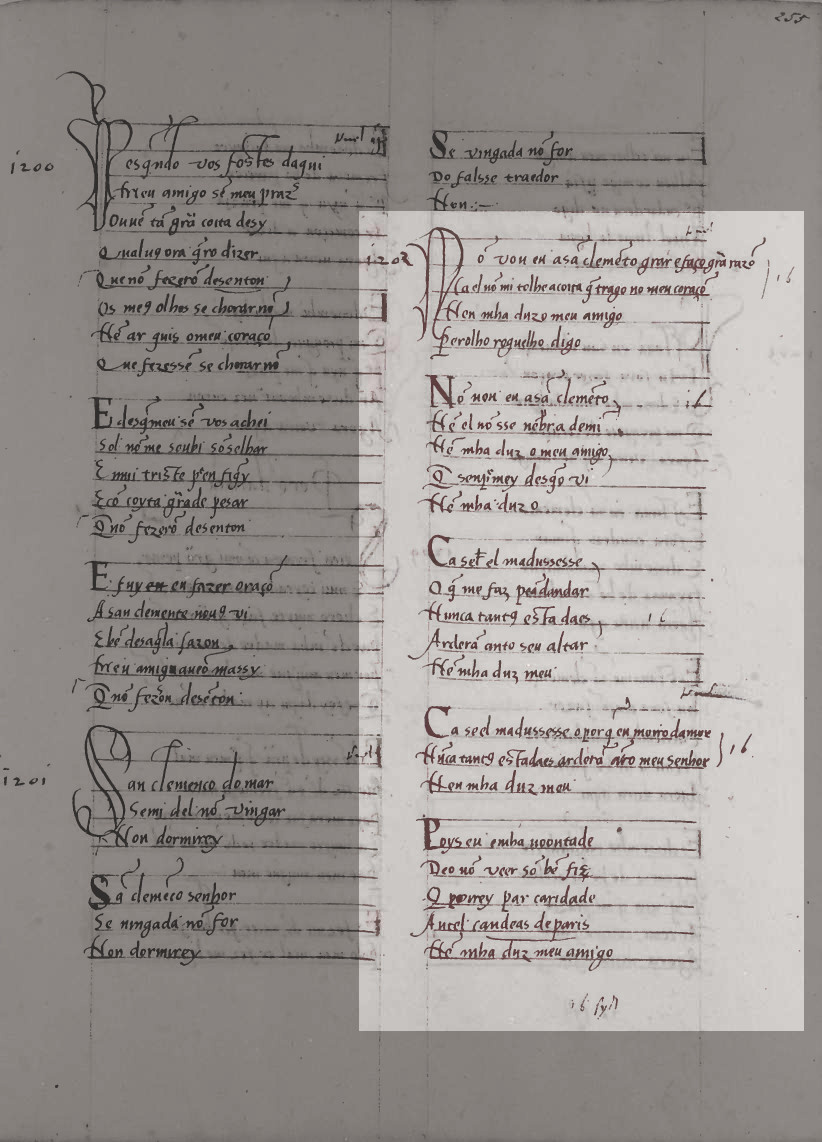 255
1200
Pesqndo vos fostes daqui
Meu amigo sẽ meu praz
Ouuẽ tã grã coita desy
Qual ug ora qro dizer
Que nõ fezerõ desenton
Os meg olhos se chorar nõ
Nẽ ar quis o meu coraçõ
Que fezessẽ se chorar nõ
E desqmeu sẽ vos achei
Sol nõ me soubi sõselhar
E mui triste
E cõ coyta grãde pesar
Qnõ fezerõ desenton
E fuy eu eu fazer oraçõ
A san clemente noug vi
E bẽ desagla sazon
Meu amig
Qnõ fezõn desẽton
1201
San clemenco do mar
Semi del nõ vingar
Non dormirey
Sã clemẽco senhor
Se ningada nõ for
Non dormirey
Se vingada nõ for
Do falsse traedor
Non :~
1202
Nõ vou eu asã clemẽto orar e faço grã razõ
Ca el nõ mi tolhe a coita q trago no meu coraçõ
Nen mha duz o meu amigo
Perolho roguelho digo
Nõ von eu asã clemẽto
Nẽ el nõ sse nẽbra demi
Nẽ mha duz o meu amigo
Q sempmey desqo vi
Nẽ mha duz o
Ca set el madussesse
O q me faz peãdandar
Nunca tantg estadaes
Arderã anto seu altar
Nẽ mha duz meu
Ca se el madussesse o porq eu moiro damore
Nũca tantg estadaes arderã ãto meu senhor
Nen mha duz meu
Poys eu emha uoontade
Deo nõ veer sõ bẽ fiz
Q porrey par caridade
Antel candeas de paris
Nẽ mha duz meu amigo